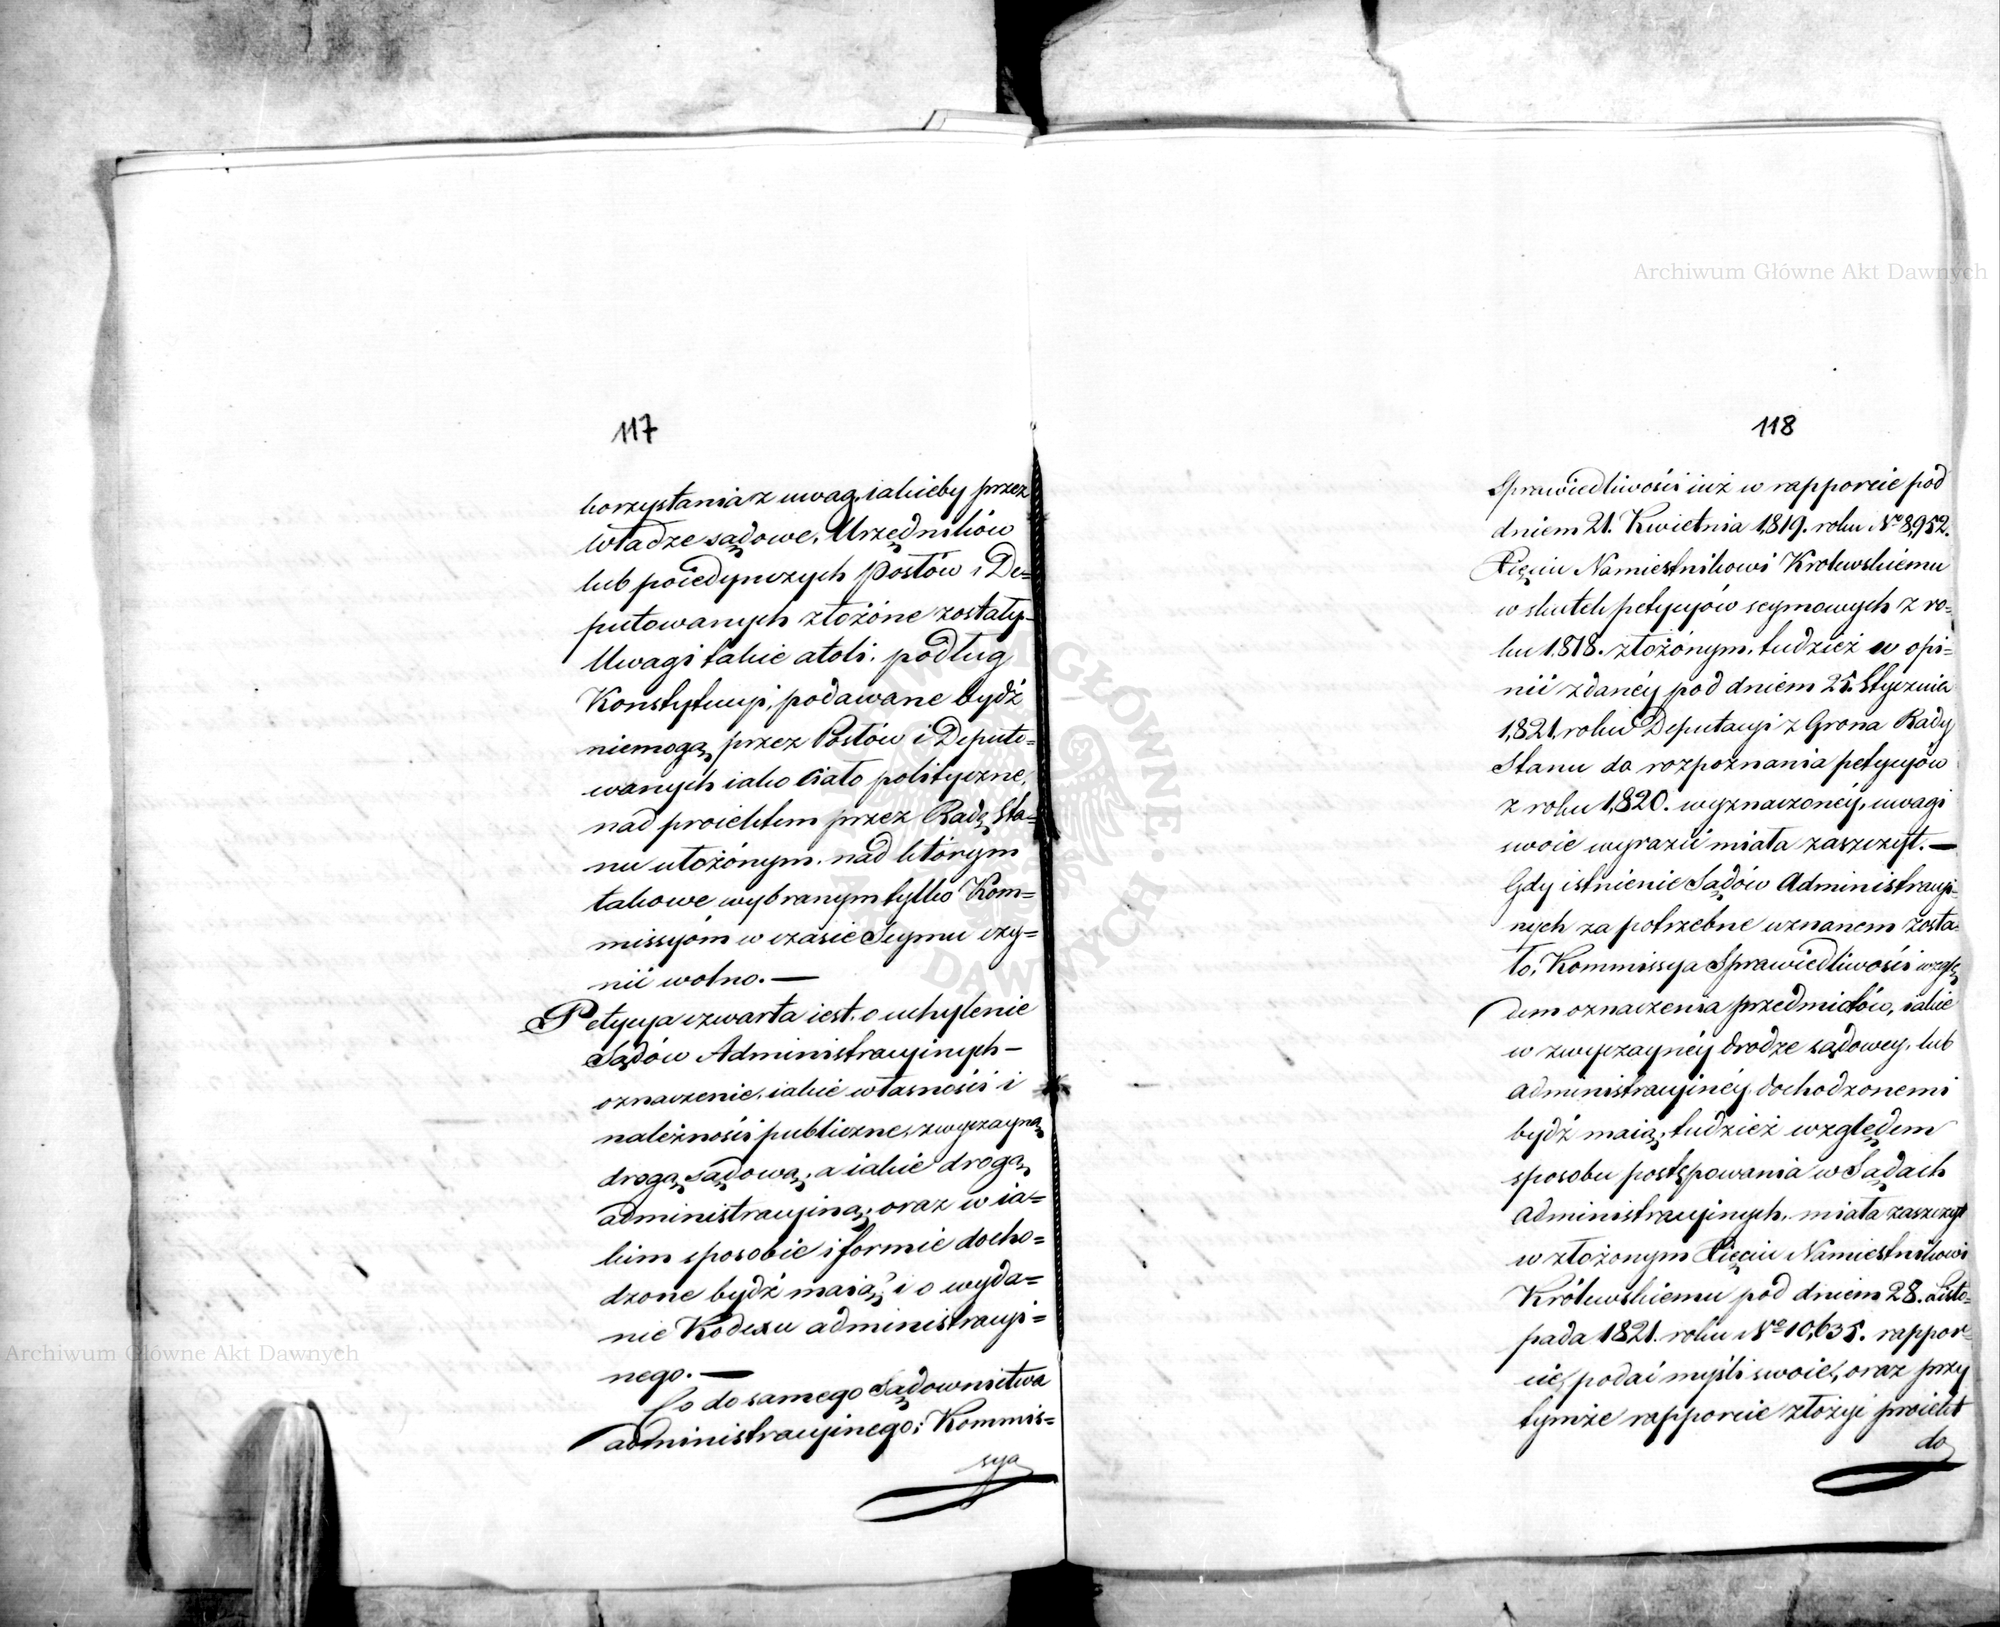 117
korzystania z uwag, iakieby przez
Władze sądowe, Urzędników
lub poiedynczych Posłów i De=
putowanych złożóne zostały.
Uwagi takie atoli, podług
Konstytucyi, podawane bydź
niemogą, przez Posłów i Deputo=
wanych iako Ciało polityczne,
nad proiektem przez Radę Sta=
nu ułożónym, nad którym
takowe wybranym tylko Kom=
missyóm w czasie Seymu czy=
nić wolno. —
Petycya czwarta iest, o uchylenie
Sądów Administracyinych —
oznaczenie, iakie własności i
należności publiczne, zwyczayną
drogą sądową, a iakie drogą
administracyiną, oraz w ia=
kim sposobie i formie docho=
dzone bydź maią? i o wyda=
nie Kodexu administracyi=
nego. —
Co do samego Sądownictwa
administracyinego; Kommis=
sya
118
Sprawiedliwości iuż w rapporcie pod
dniem 21. Kwietnia 1,819. roku No 8,952.
Xięciu Namiestnikowi Krolewskiemu
w skutek petycyów seymowych z ro=
ku 1,818. złożónym, tudzież w opi=
nii zdanéy pod dniem 25. Stycznia
1,821. roku Deputacyi z Grona Rady
Stanu do rozpoznania petycyów
z roku 1,820. wyznaczonéy, uwagi
swoie wyrazić miała zaszczyt. —
Gdy istnienie Sądów Administracyi=
nych za potrzebne uznanem zosta=
ło, Kommissya Sprawiedliwości wzglę
dem oznaczenia przedmiotów, iakie
w zwyczaynéy drodze sądowey, lub
administracyinéy dochodzonemi
bydź maią, tudzież względem
sposobu postępowania w Sądach
Administracyinych, miała zaszczyt
w złożonym Xięciu Namiestnikowi
Królewskiemu pod dniem 28. Listo=
pada 1821. roku No 10,635. rappor=
cie, podać myśli swoie, oraz przy
tymże rapporcie złożyć proiekt
do
Archiwum Główne Akt Dawnych
Archiwum Główne Akt Dawnych